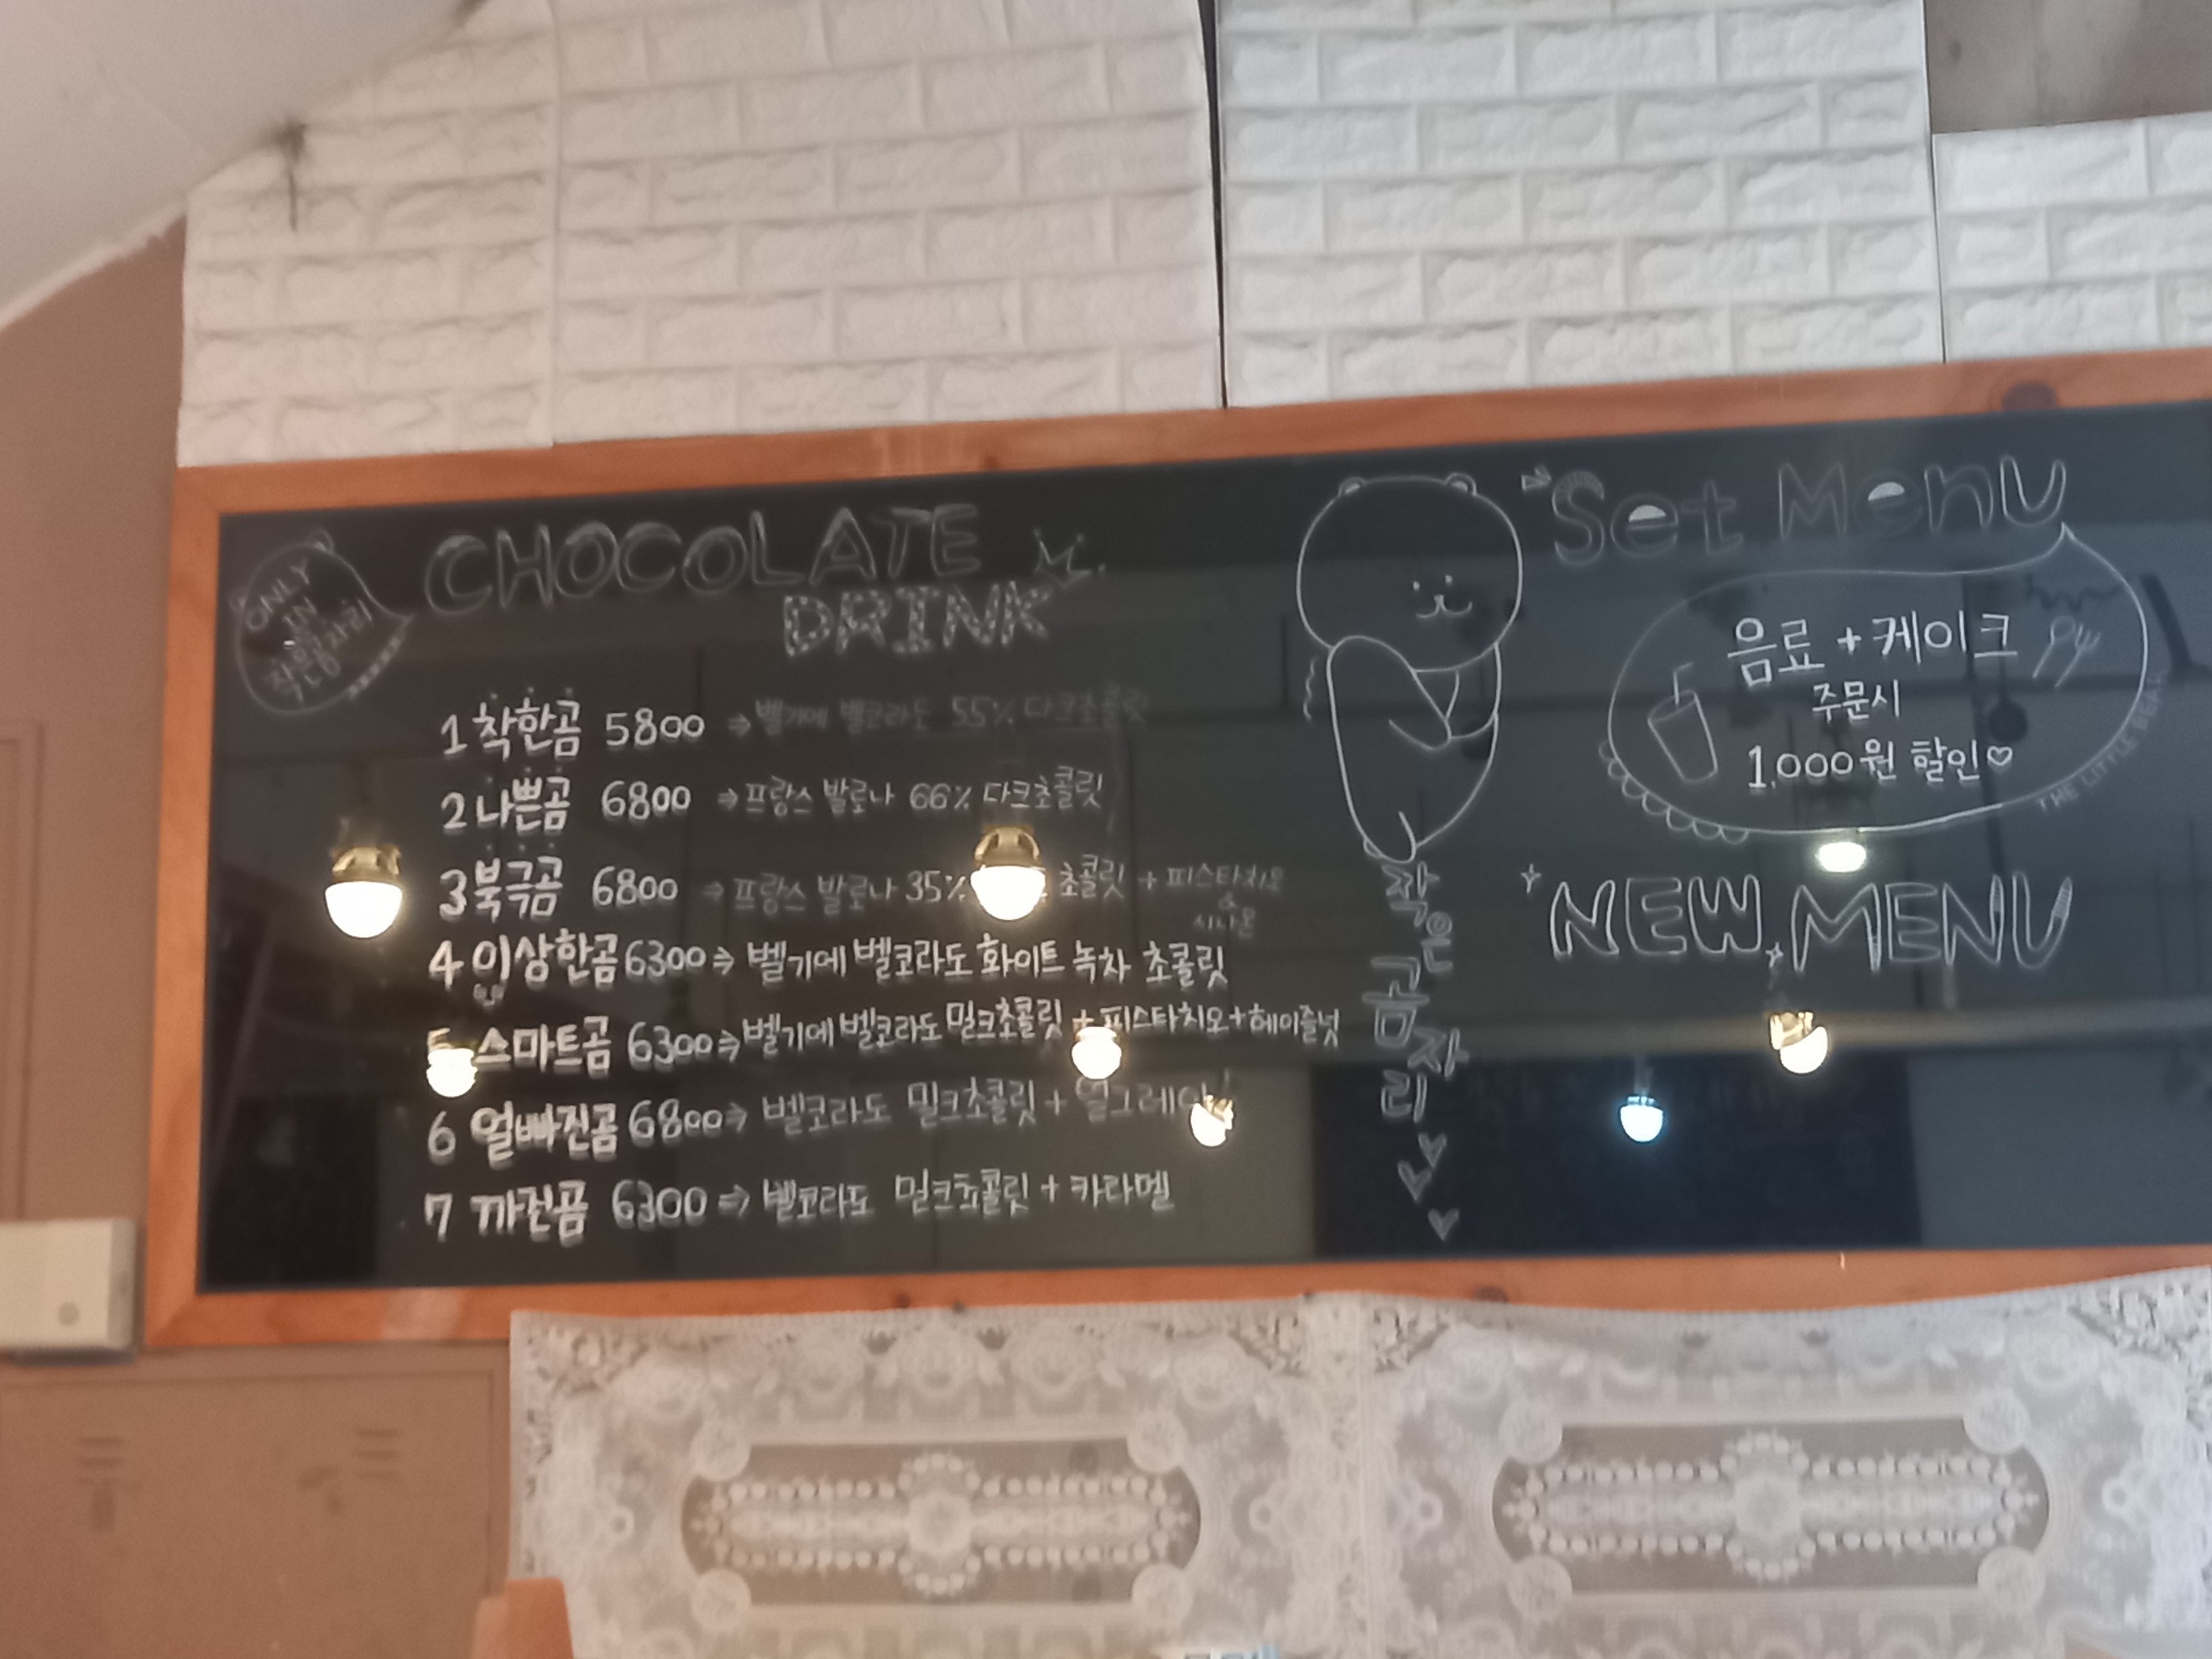 ONLY
IN
작은곰자리
CHOCOLATE
DRINK
1 착한곰 5800 ⇒ 벨기에 벨코라도 55% 다크초콜릿
2 나쁜곰 6800 ⇒ 프랑스 발로나 66% 다크초콜릿
3 북극곰 6800 ⇒ 프랑스 발로나 35% 초콜릿 + 피스타치오
&
시나몬
4 이상한곰 6300 ⇒ 벨기에 벨코라도 화이트 녹차 초콜릿
5 스마트곰 6300 ⇒ 벨기에 벨코라도 밀크초콜릿 + 피스타치오 + 헤이즐넛
6 얼빠진곰 6800 ⇒ 벨코라도 밀크초콜릿 + 얼그레이
7 까진곰 6300 ⇒ 벨코라도 밀크쵸콜릿 + 카라멜
작은곰자리
Set Menu
음료 + 케이크
주문시
1,000원 할인♡
THE LITTLE BEAR
NEW MENU